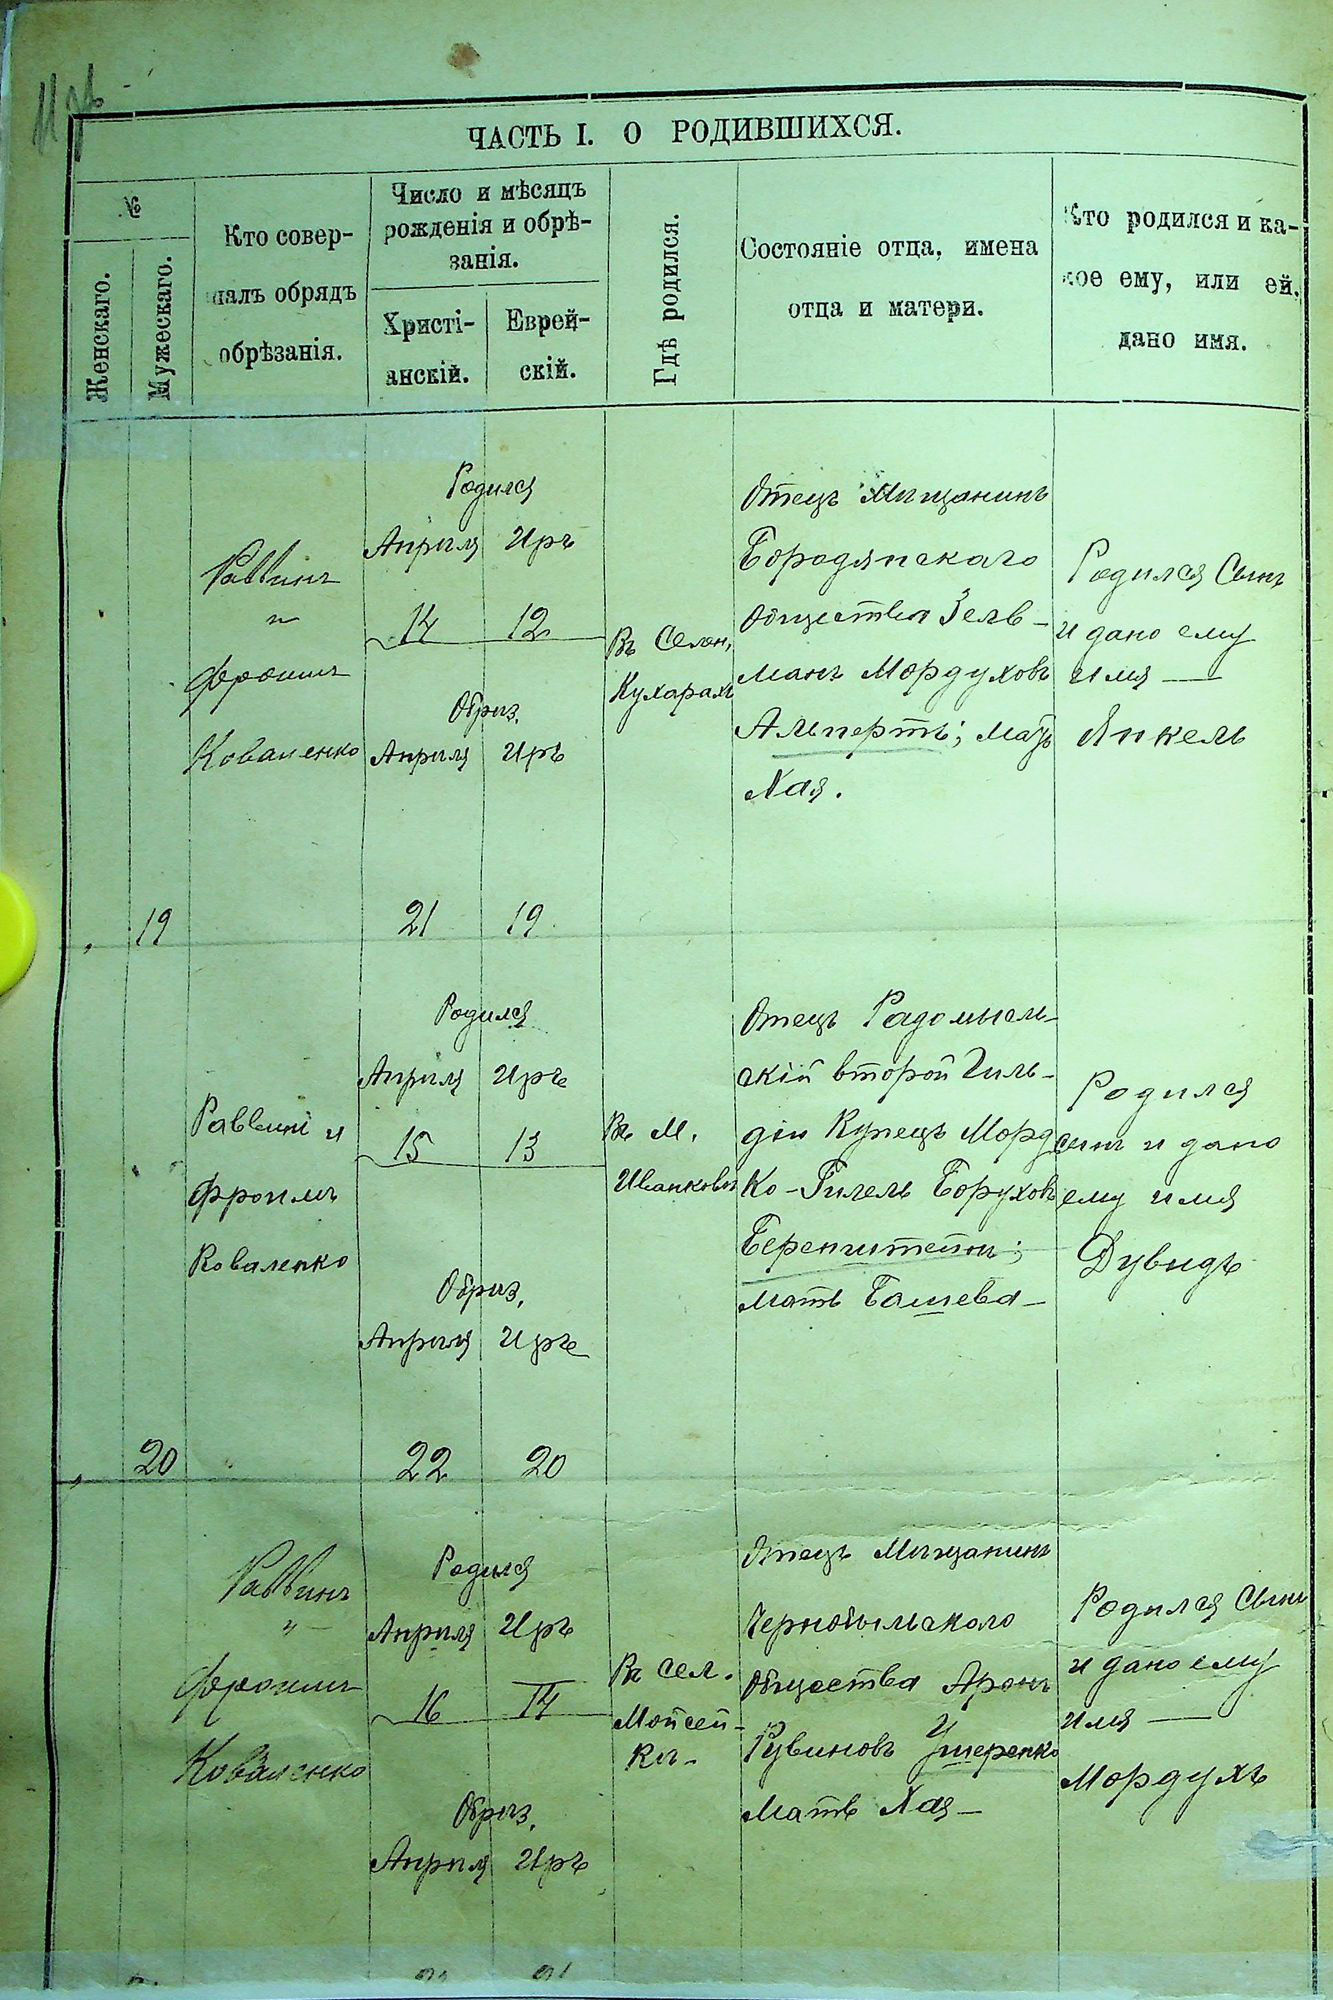 ЧАСТЬ I. О РОДИВШИХСЯ.
№
Женскаго.
Мужескаго.
Кто совер-
шалъ обрядъ
обрѣзанія.
Число и мѣсяцъ
рожденія и обрѣ-
занія.
Христі-
анскій.
Еврей-
скій.
Гдѣ родился.
Состояніе отца, имена
отца и матери.
Кто родился и ка-
кое ему, или ей,
дано имя.
19
Раввинъ
и
Фроимъ
Коваленко
Родился
Апрѣля Иръ
14 12
Обрѣз.
Апрѣля Иръ
21 19
Въ Селен.
Кухарахъ
Отецъ Мѣщанинъ
Бородянскаго
Общества Зель-
манъ Мордуховъ
Альпертъ; мать
Хая.
Родился Сынъ
и дано ему
имя —
Янкель
20
Раввинъ и
Фроимъ
Коваленко
Родился
Апрѣля Иръ
15 13
Обрѣз.
Апрѣля Иръ
22 20
Въ М.
Иванковѣ
Отецъ Радомысль-
скій второй Гиль-
діи Купецъ Морд
Ко-Гилель Боруховъ
Беренштейнъ;
мать Башева —
Родился
сынъ и дано
ему имя
Дувидъ
Раввинъ
и
Фроимъ
Коваленко
Родился
Апрѣля Иръ
16 14
Обрѣз.
Апрѣля Иръ
Въ сел.
Мойсей-
кѣ-
Отецъ Мѣщанинъ
Чернобыльскаго
Общества Аронъ
Рувиновъ Ушеренко
Мать Хая —
Родился Сынъ
и дано ему
имя —
Мордухъ